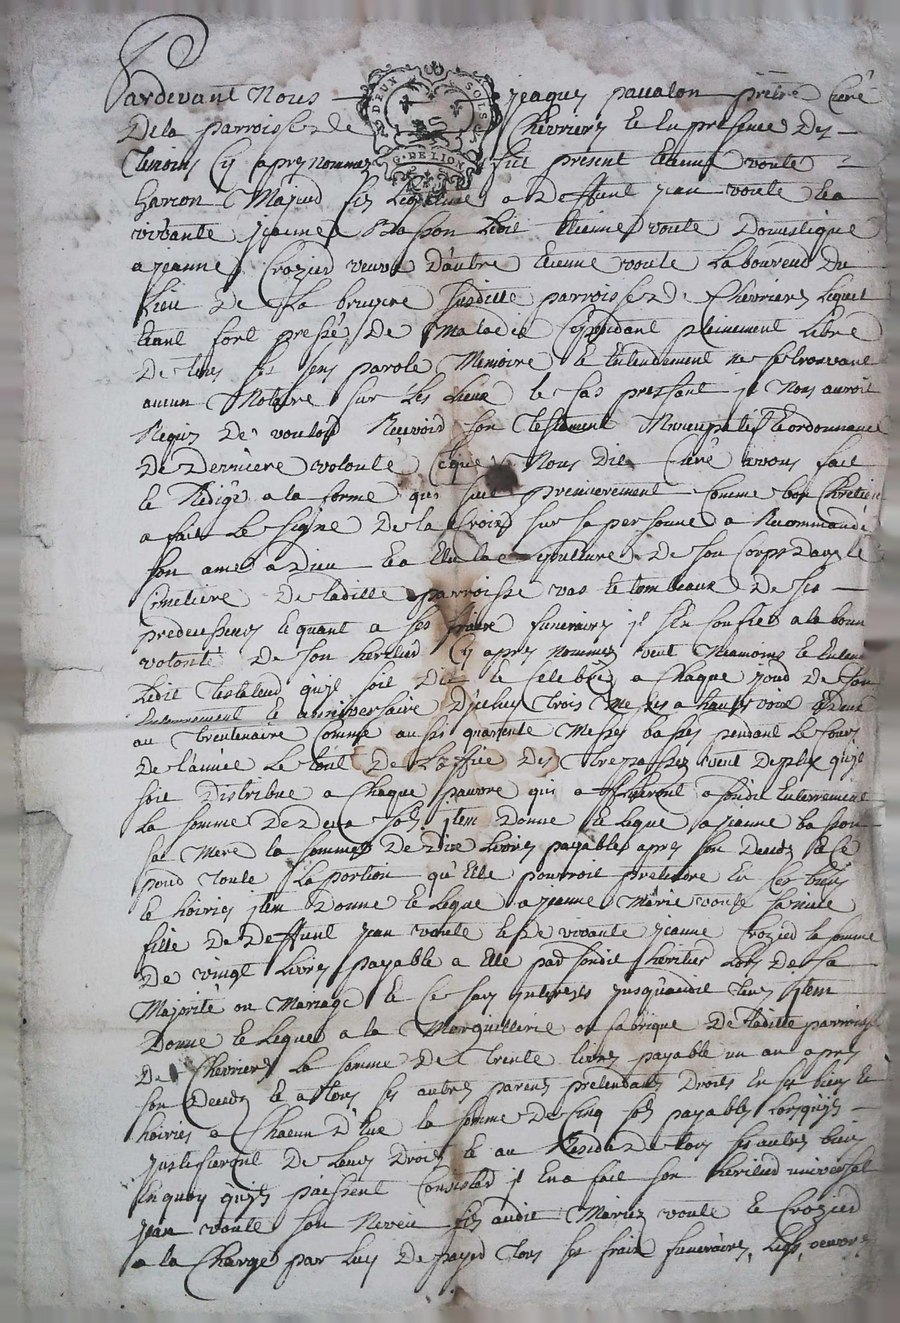 Pardevant Nous jeaques pauaton prêtre Curé
De la parroisse de Chevrieres Et En presence Des
temoins Cy apres nommes fut present Etienne voute
Garcon Majeur fils Legitime a Deffunt jean voute Et a
vivante jeanne Basson Ledit Etienne voute Domestique
a jeanne Crozier veuve D'autre Etienne voute Laboureur Du
Lieu De La bruyere susditte parroisse De Chevrieres Lequel
Etant fort pressé De Maladie Cependant pleinement Libre
De tous ses sens parole Memoire Et Entendement ne se trouvant
aucun Notaire sur Les Lieux le Cas pressant jl Nous auroit
Requis De vouloir Recevoir son Testament Nuncupatif Et ordonnance
De Derniere volonté Ceque Nous Dit Curé avons fait
Et Redigé a la forme qui suit premierement Comme bon Chretien
a fait Le signe De la Croix sur sa personne a Recommandé
son ame a Dieu Et a Elu la sepulture De son Corps Dans le
Cimetiere De laditte parroisse vas Et tombeaux De ses
predecesseurs Et quant a ses fraix funeraires jl s'En Confie a la bonne
volonté De son heritier Cy apres nommes veut Neamoins Et Entend
Ledit testateur qu'jl soit Dit Et Celebré a Chaque jour De son
Enterrement Et anniversaire D'jcelluy Trois Messes a haute voix
au trentenaire Comme aussi quarente Messes basses pendant Le Cours
De l'année Le tout De L'office Des Trepasses veut De plus qu'jl
soit Distribué a Chaque pauvre qui assisteront a sondit Enterrement
La somme De Deux sols jtem Donne Et Legue a jeanne basson
sa Mere la somme De Dixe Livres payables apres son Deces Et Ce
pour toute La portion qu'Elle pourroit pretendre En ses biens
Et hoiries jtem Donne Et Legue a jeanne Marie voute sa niece
fille De Deffunt jean voute Et De vivante jeanne Crozier la somme
De vingt Livres payable a Elle par sondit heritier Lors De sa
Majorité ou Mariage Et Ce sans jnterests jusqu'audit tems jtem
Donne Et Legue a la Marguillerie ou fabrique De laditte parroisse
De Chevrieres La somme De trente livres payable un an apres
son Deces Et a tous ses autres parens pretendants Droits En ses biens Et
hoiries a Chacun D'Eux la somme De Cinq sols payables Lorsqu'jls
justifieront De Leurs Droits Et au Residu De tous ses autres biens
En quoy qu'jls puissent Consister jl En a fait son heritier universel
jean voute son Neveu fils audit Mariez voute Et Crozier
a la Charge par Luy De payer tous ses fraix funeraires, Legs, oeuvres
DEUX SOLS
G. DE LION